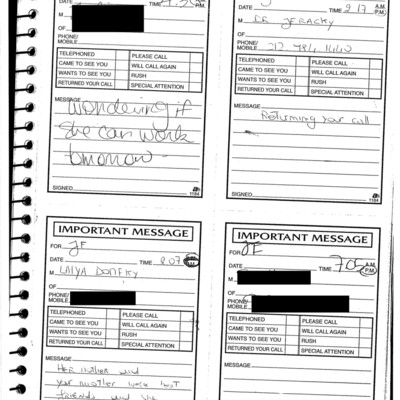 DATE
TIME
P.M.
M
OF
PHONE/
MOBILE
TELEPHONED PLEASE CALL
CAME TO SEE YOU WILL CALL AGAIN
WANTS TO SEE YOU RUSH
RETURNED YOUR CALL SPECIAL ATTENTION
MESSAGE
wondering if
she can work
tomorrow
SIGNED
1184
DATE TIME 2 17 A.M.
P.M.
M DR JERACKY
OF
PHONE/
MOBILE 212
TELEPHONED PLEASE CALL
CAME TO SEE YOU WILL CALL AGAIN
WANTS TO SEE YOU RUSH
RETURNED YOUR CALL SPECIAL ATTENTION
MESSAGE
Returning your call
SIGNED
1184
IMPORTANT MESSAGE
FOR JE
DATE TIME 207 P.M.
M
OF
PHONE/
MOBILE
TELEPHONED PLEASE CALL
CAME TO SEE YOU WILL CALL AGAIN
WANTS TO SEE YOU RUSH
RETURNED YOUR CALL SPECIAL ATTENTION
MESSAGE
Her mother and
your mother were best
friends and she
IMPORTANT MESSAGE
FOR JE
DATE TIME A.M.
P.M.
M
OF
PHONE/
MOBILE
TELEPHONED PLEASE CALL
CAME TO SEE YOU WILL CALL AGAIN
WANTS TO SEE YOU RUSH
RETURNED YOUR CALL SPECIAL ATTENTION
MESSAGE